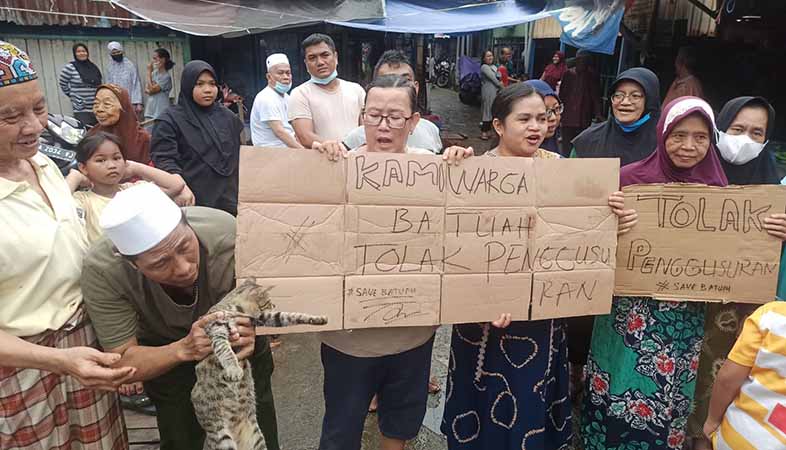 KAMI WARGA
# BATUAH
TOLAK PENGGUSURAN
#SAVE BATUAH
TOLAK
PENGGUSURAN
#SAVE BATUAH